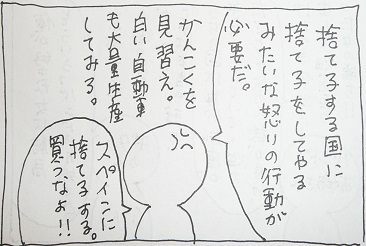 捨て子する国に
捨て子をしてやる
みたいな怒りの行動が
必要だ。
かんこくを
見習え。
白い自動車
も大量生産
してみる。
スペインに
捨て子する。
買うなよ!!